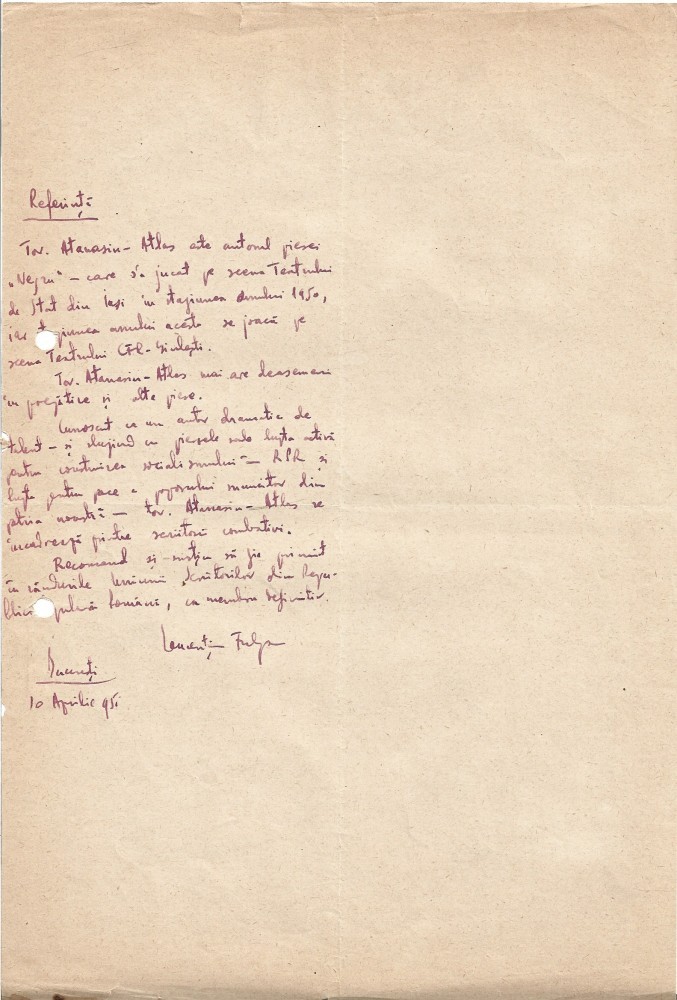 Referință
Tov. Atanasiu-Atlas este autorul piesei
„Negru" – care s'a jucat pe scena Teatrului
de Stat din Iași în stagiunea anului 1950,
iar giunea anului acesta se joacă pe
scena Teatrului CFR-Giulești.
Tov. Atanasiu-Atlas mai are deasemeni
în pregătire și alte piese.
Cunoscut ca un autor dramatic de
talent – și slujind cu piesele sale lupta activă
pentru construirea socialismului în RPR și
lupta pentru pace a poporului muncitor din
patria noastră – tov. Atanasiu-Atlas se
încadrează printre scriitorii combativi.
Recomand și susțin să fie primit
în rândurile Uniunii Scriitorilor din Repu-
blic pulară Română, ca membru definitiv.
Laurențiu Fulga
București
10 Aprilie 951